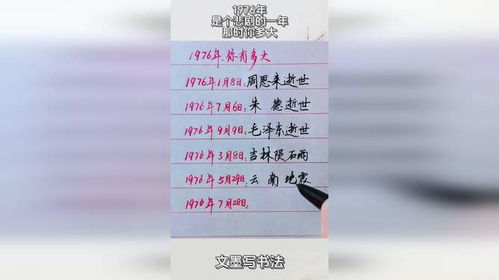 1976年
是个悲剧的一年
那时你多大
1976年,你有多大
1976年1月8日,周恩来逝世
1976年7月6日,朱 德逝世
1976年9月9日,毛泽东逝世
1976年3月8日,吉林陨石雨
1976年5月29日,云 南地震
1976年7月28日,
文墨写书法